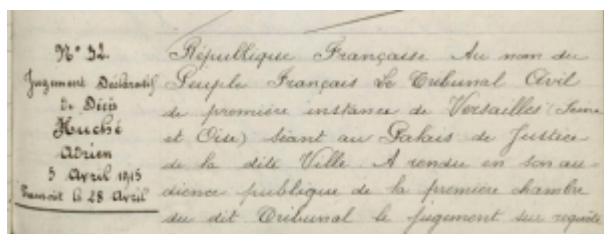 N° 32.
Jugement Déclaratif
de Décès
Huché
Adrien
5 Avril 1915
Transcrit le 28 Avril
République Française Au nom du
Peuple Français Le Tribunal Civil
de première instance de Versailles (Seine
et Oise) séant au Palais de Justice
de la dite Ville. A rendu en son au-
dience publique de la première chambre
du dit Tribunal le jugement sur requête